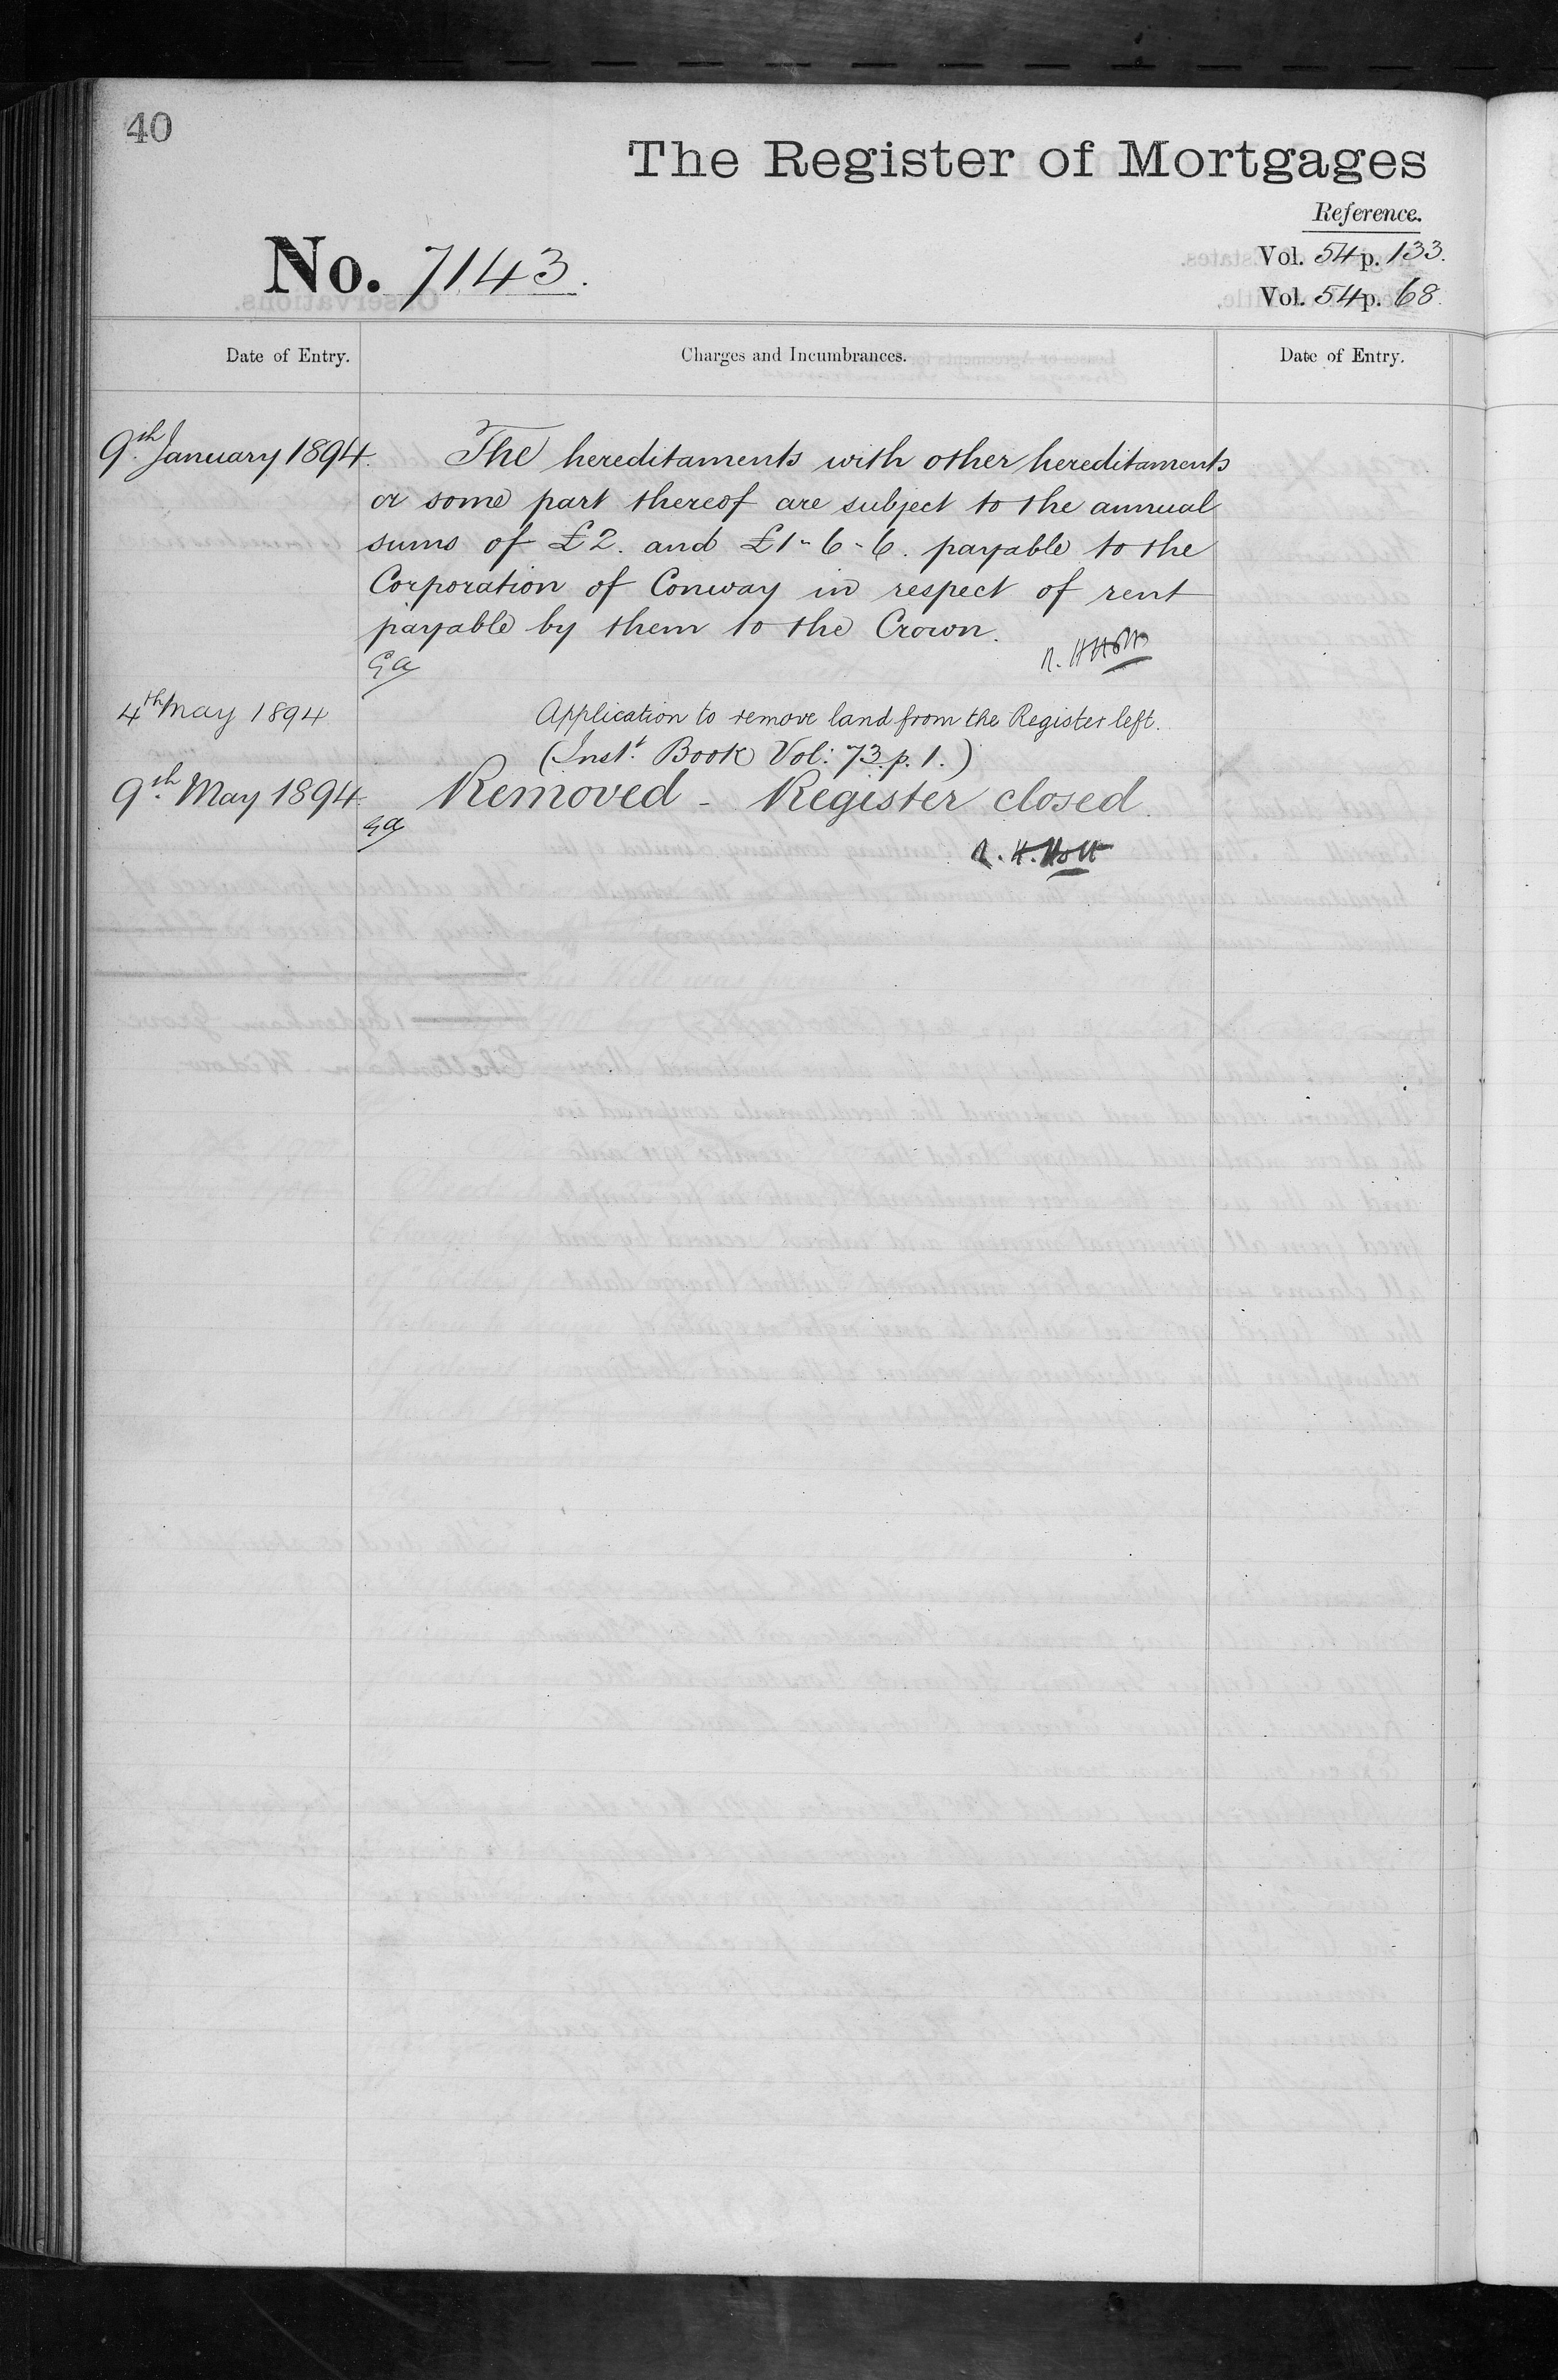 40
The Register of Mortgages
Reference.
No. 7143.
Vol. 54 p. 133.
Vol. 54 p. 68.
Date of Entry.
Charges and Incumbrances.
Date of Entry.
9th January 1894. The hereditaments with other hereditaments
or some part thereof are subject to the annual
sums of £2. and £1-6-6. payable to the
Corporation of Conway in respect of rent
payable by them to the Crown.
R. H. Holt
4th May 1894 Application to remove land from the Register left.
(Inst. Book Vol: 73. p. 1.)
9th May 1894. Removed - Register closed.
R. H. Holt